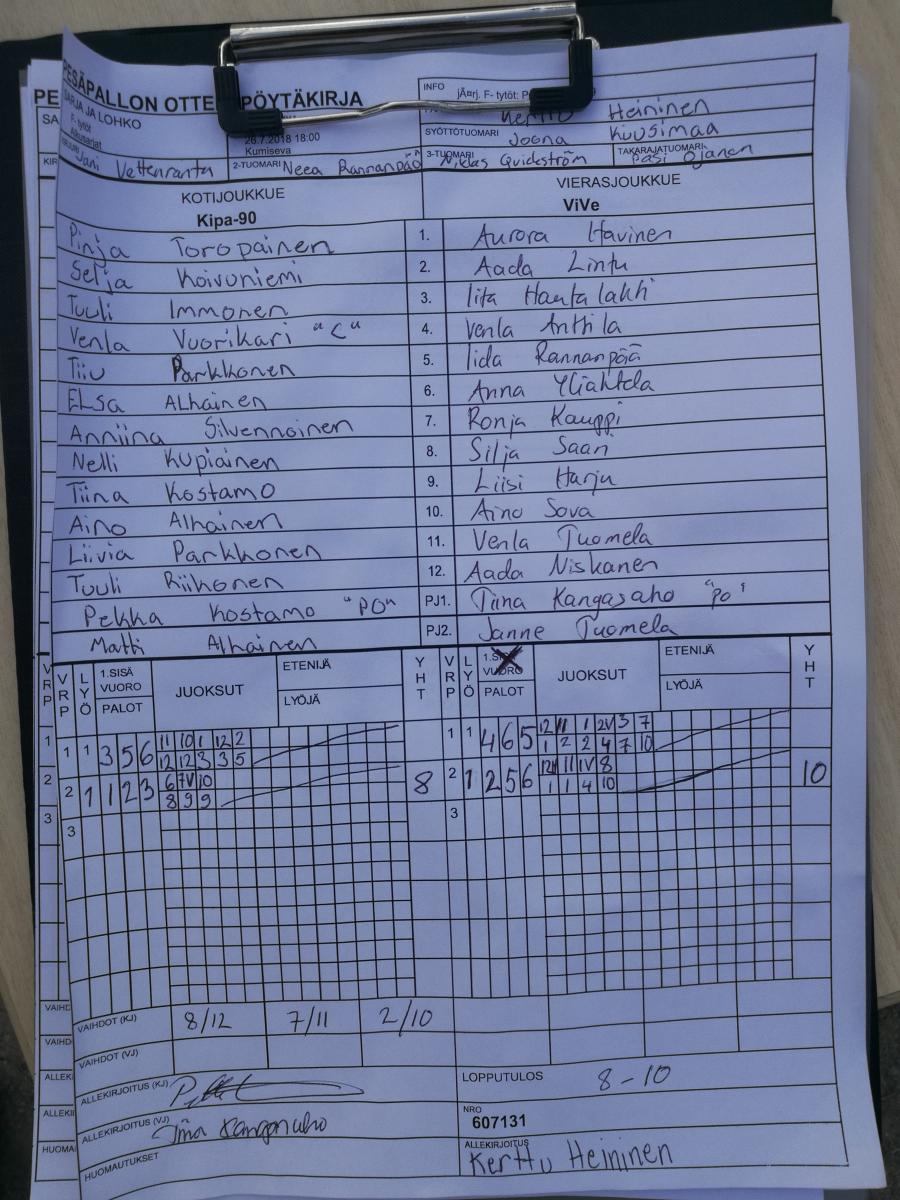 PESÄPALLON OTTE PÖYTÄKIRJA
SARJA JA LOHKO
F- tytöt
Alkusarjat
26.7.2018 18:00
Kumiseva
INFO jÃ¤rj. F- tytöt: P
Kerttu Heininen
SYÖTTÖTUOMARI Joona Kuusimaa
Jani Vettenranta 2-TUOMARI Neea Rannanpää 3-TUOMARI Niklas Quidström TAKARAJATUOMARI Pasi Ojanen
KOTIJOUKKUE VIERASJOUKKUE
Kipa-90 ViVe
Pinja Toropainen 1. Aurora Havinen
Selja Koivuniemi 2. Aada Lintu
Tuuli Immonen 3. Iita Hautalahti
Venla Vuorikari "C" 4. Venla Anttila
Tiiu Parkkonen 5. Iida Rannanpää
ELSA ALhainen 6. Anna Yliahtela
Anniina Silvennoinen 7. Ronja Kauppi
Nelli Kupiainen 8. Silja Saari
Tiina Kostamo 9. Liisi Harju
Aino Alhainen 10. Aino Sova
Liivia Parkkonen 11. Venla Tuomela
Tuuli Riikonen 12. Aada Niskanen
Pekka Kostamo "PO" PJ1. Tiina Kangasaho "Po"
Matti Alhainen PJ2. Janne Tuomela
VRP LYÖ 1.SISÄ VUORO PALOT JUOKSUT ETENIJÄ LYÖJÄ YHT VRP LYÖ 1.SISÄ VUORO PALOT JUOKSUT ETENIJÄ LYÖJÄ YHT
1 1 3 5 6 11 10 1 12 2 1 1 4 6 5 12 11 1 2V 3 7
12 12 3 3 5 1 2 2 4 7 10
2 1 1 2 3 6 7V 10 8 2 1 2 5 6 12 11 1V 8 10
8 9 9 1 1 4 10
3 3
VAIHDOT (KJ) 8/12 7/11 2/10
VAIHDOT (VJ)
ALLEKIRJOITUS (KJ) LOPPUTULOS 8-10
ALLEKIRJOITUS (VJ) Tiina Kangasaho NRO 607131
HUOMAUTUKSET ALLEKIRJOITUS Kerttu Heininen